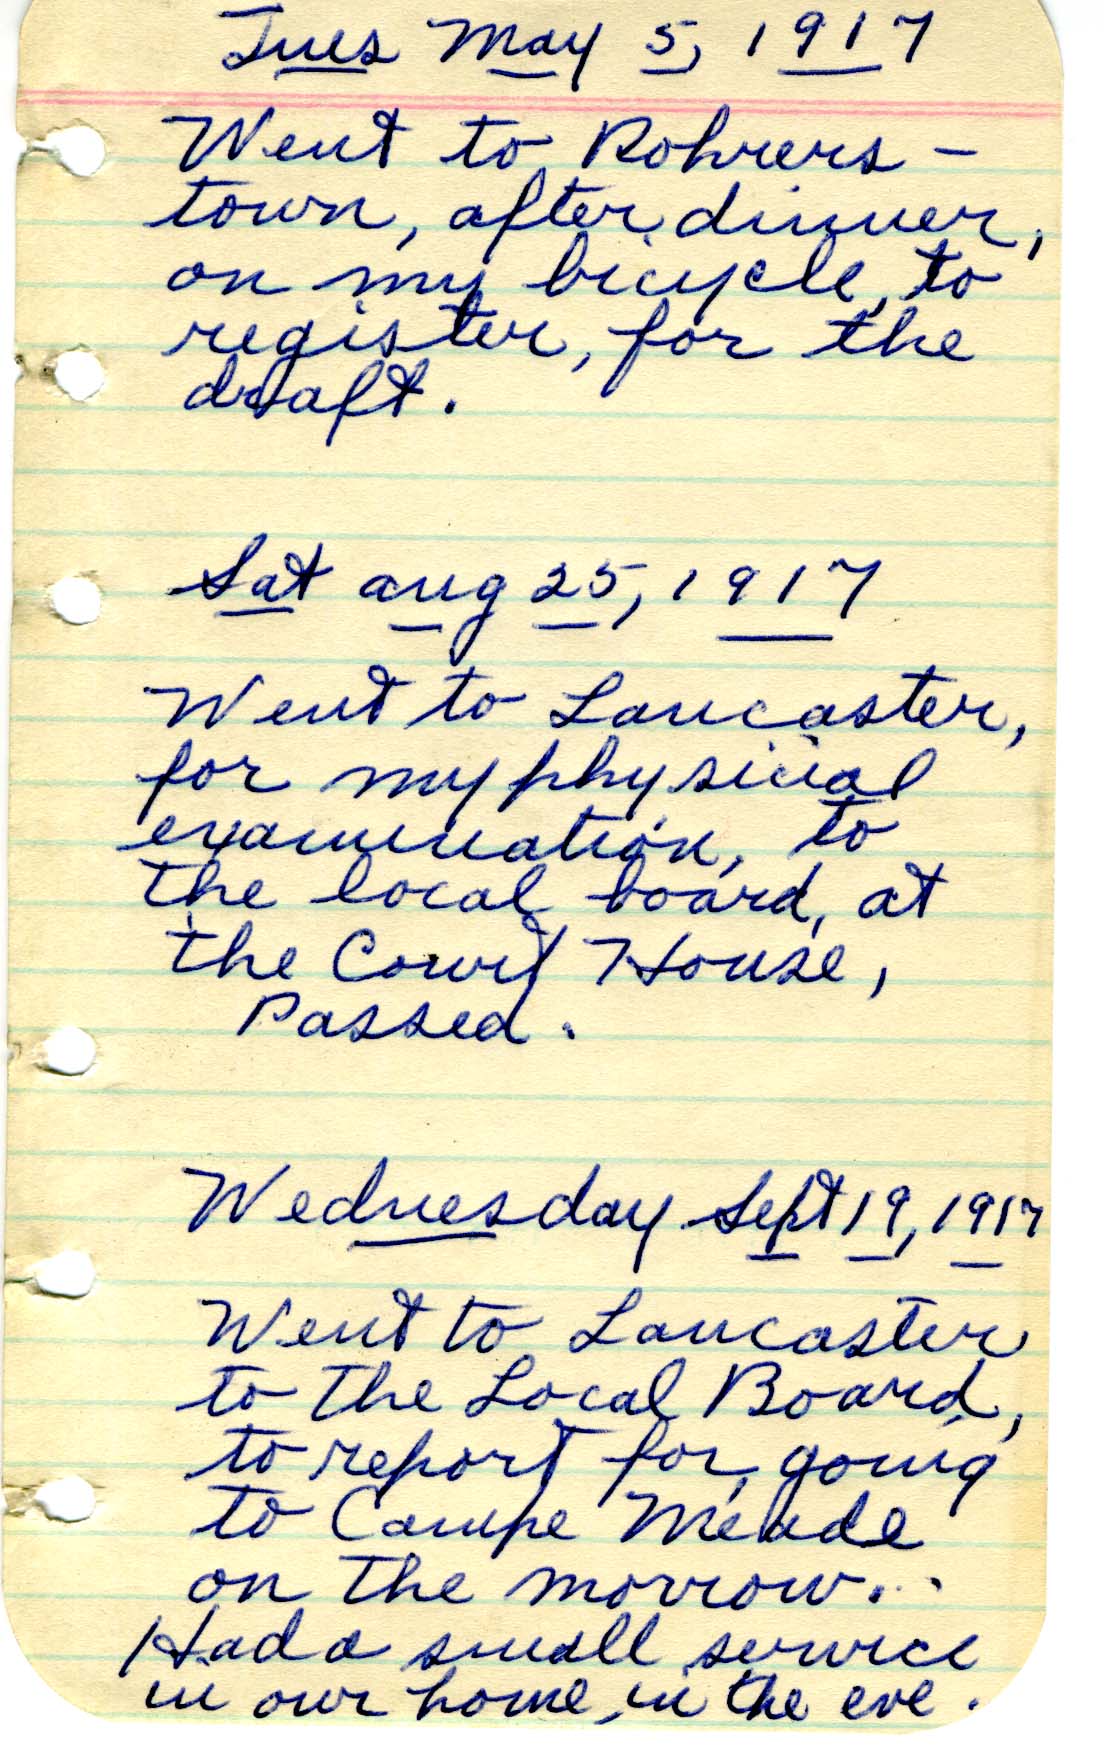 Tues May 5, 1917
Went to Rohrers-
town, after dinner,
on my bicycle, to
register, for the
draft.
Sat Aug 25, 1917
Went to Lancaster,
for my physical
examination, to
the local board, at
the Court House,
Passed.
Wednesday Sept 19, 1917
Went to Lancaster
to the Local Board,
to report for going
to Campe Meade
on the morrow...
Had a small service
in our home, in the eve.